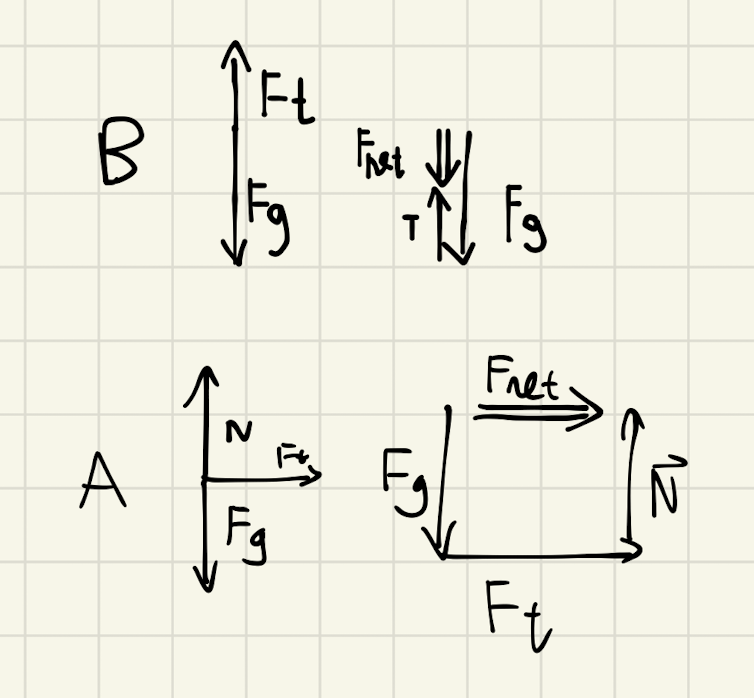 B
Ft
Fg
Fnet
T
Fg
A
N
Ft
Fg
Fnet
Fg
N⃗
Ft